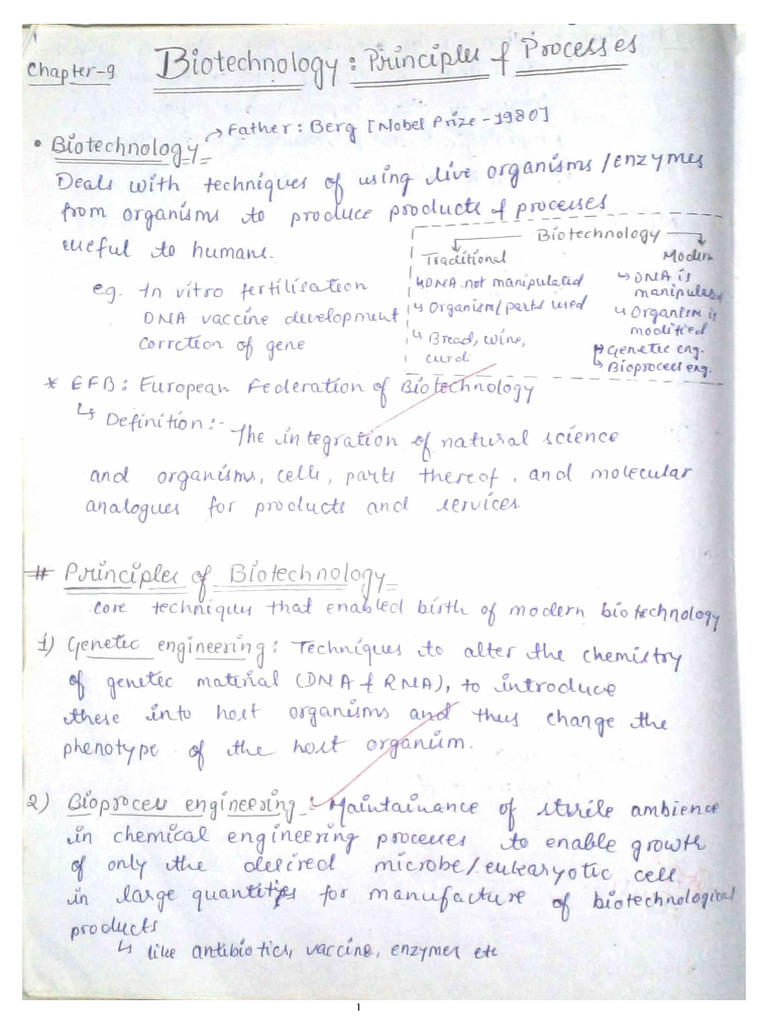 Chapter-9 Biotechnology: Principles & Processes
• Biotechnology → Father: Berg [Nobel Prize - 1980]
Deals with techniques of using live organisms/enzymes
from organisms to produce products & processes
useful to humans.
eg. In vitro fertilisation
DNA vaccine development
Corrction of gene
Biotechnology
Traditional
↳ DNA not manipulated
↳ Organism/parts used
↳ Bread, wine,
curd
Modern
↳ DNA is
manipulated
↳ Organism is
modified
↳ Genetic eng.
↳ Bioprocess eng.
* EFB: European Federation of Biotechnology
↳ Definition:- The integration of natural science
and organisms, cells, parts thereof, and molecular
analogues for products and services.
# Principles of Biotechnology
core techniques that enabled birth of modern biotechnology
1) Genetic engineering: Techniques to alter the chemistry
of genetic material (DNA & RNA), to introduce
these into host organisms and thus change the
phenotype of the host organism.
2) Bioprocess engineering: Maintainance of sterile ambience
in chemical engineering processes to enable growth
of only the desired microbe/eukaryotic cell
in large quantities for manufacture of biotechnological
products
↳ like antibiotics, vaccine, enzymes etc
1